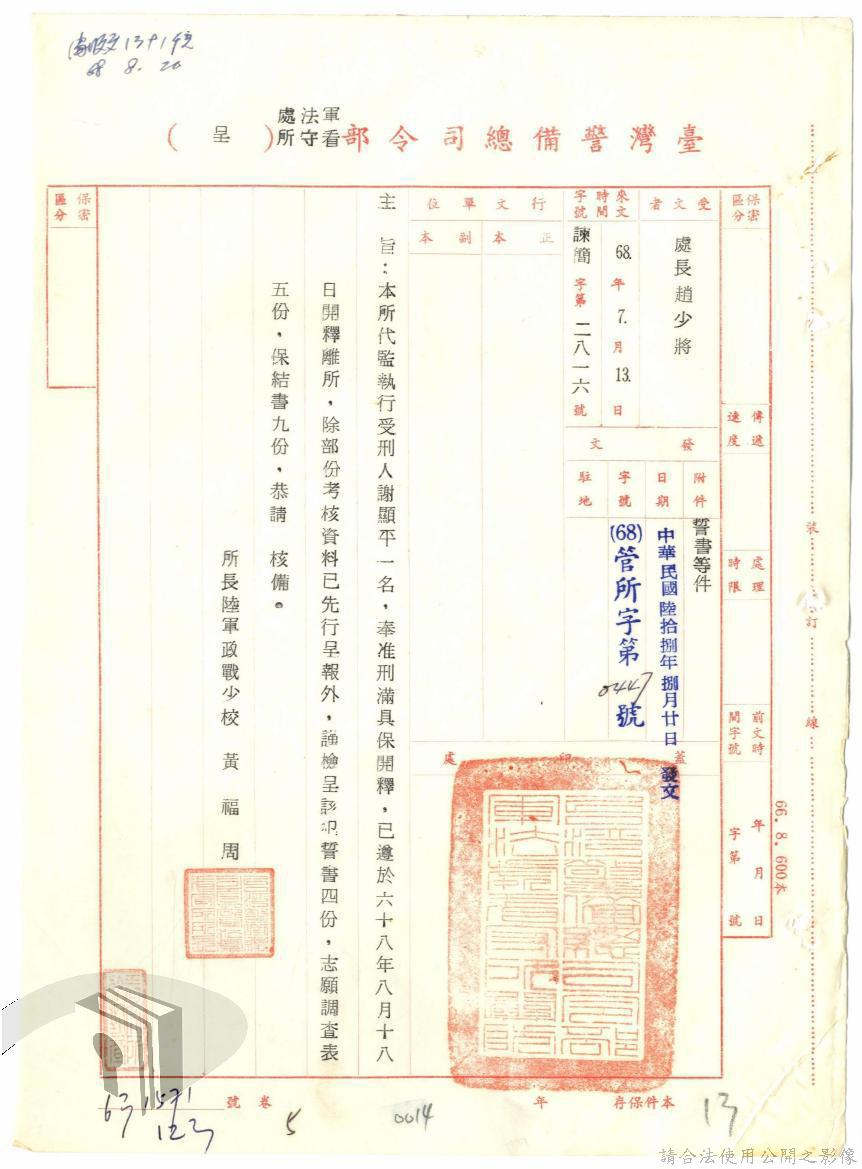 68 8. 20
臺灣警備總司令部軍法處看守所(呈)
保密區分
傳遞速度
處理時限
前文時間字號
年月日
字第號
受文者
處長趙少將
來文時間
68.年7.月13.日
字號
諫簡字第二八一六號
發文
附件
誓書等件
日期
中華民國陸拾捌年捌月廿日發文
字號
(68)管所字第0447號
駐地
行文單位
正本
副本
蓋印處
主旨：本所代監執行受刑人謝顯平一名，奉准刑滿具保開釋，已遵於六十八年八月十八
日開釋離所，除部份考核資料已先行呈報外，謹檢呈該犯誓書四份，志願調查表
五份，保結書九份，恭請 核備。
所長陸軍政戰少校 黃福周
保密區分
裝訂線
66.8.600本
本件保存年
0014
卷
5
號
13
請合法使用公開之影像